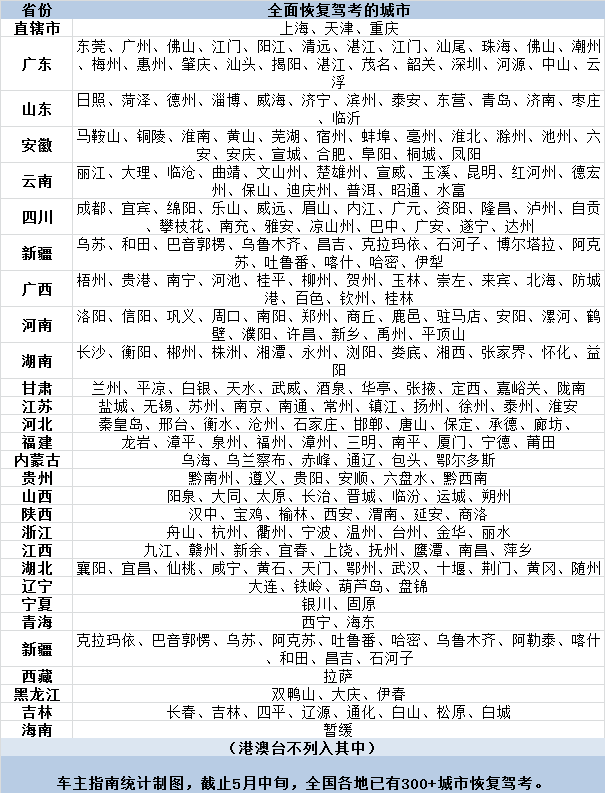 省份 全面恢复驾考的城市
直辖市 上海、天津、重庆
广东 东莞、广州、佛山、江门、阳江、清远、湛江、江门、汕尾、珠海、佛山、潮州
、梅州、惠州、肇庆、汕头、揭阳、湛江、茂名、韶关、深圳、河源、中山、云
浮
山东 日照、菏泽、德州、淄博、威海、济宁、滨州、泰安、东营、青岛、济南、枣庄
、临沂
安徽 马鞍山、铜陵、淮南、黄山、芜湖、宿州、蚌埠、亳州、淮北、滁州、池州、六
安、安庆、宣城、合肥、阜阳、桐城、凤阳
云南 丽江、大理、临沧、曲靖、文山州、楚雄州、宣威、玉溪、昆明、红河州、德宏
州、保山、迪庆州、普洱、昭通、水富
四川 成都、宜宾、绵阳、乐山、威远、眉山、内江、广元、资阳、隆昌、泸州、自贡
、攀枝花、南充、雅安、凉山州、巴中、广安、遂宁、达州
新疆 乌苏、和田、巴音郭楞、乌鲁木齐、昌吉、克拉玛依、石河子、博尔塔拉、阿克
苏、吐鲁番、喀什、哈密、伊犁
广西 梧州、贵港、南宁、河池、桂平、柳州、贺州、玉林、崇左、来宾、北海、防城
港、百色、钦州、桂林
河南 洛阳、信阳、巩义、周口、南阳、郑州、商丘、鹿邑、驻马店、安阳、漯河、鹤
壁、濮阳、许昌、新乡、禹州、平顶山
湖南 长沙、衡阳、郴州、株洲、湘潭、永州、浏阳、娄底、湘西、张家界、怀化、益
阳
甘肃 兰州、平凉、白银、天水、武威、酒泉、华亭、张掖、定西、嘉峪关、陇南
江苏 盐城、无锡、苏州、南京、南通、常州、镇江、扬州、徐州、泰州、淮安
河北 秦皇岛、邢台、衡水、沧州、石家庄、邯郸、唐山、保定、承德、廊坊、
福建 龙岩、漳平、泉州、福州、漳州、三明、南平、厦门、宁德、莆田
内蒙古 乌海、乌兰察布、赤峰、通辽、包头、鄂尔多斯
贵州 黔南州、遵义、贵阳、安顺、六盘水、黔西南
山西 阳泉、大同、太原、长治、晋城、临汾、运城、朔州
陕西 汉中、宝鸡、榆林、西安、渭南、延安、商洛
浙江 舟山、杭州、衢州、宁波、温州、台州、金华、丽水
江西 九江、赣州、新余、宜春、上饶、抚州、鹰潭、南昌、萍乡
湖北 襄阳、宜昌、仙桃、咸宁、黄石、天门、鄂州、武汉、十堰、荆门、黄冈、随州
辽宁 大连、铁岭、葫芦岛、盘锦
宁夏 银川、固原
青海 西宁、海东
新疆 克拉玛依、巴音郭愣、乌苏、阿克苏、吐鲁番、哈密、乌鲁木齐、阿勒泰、喀什
、和田、昌吉、石河子
西藏 拉萨
黑龙江 双鸭山、大庆、伊春
吉林 长春、吉林、四平、辽源、通化、白山、松原、白城
海南 暂缓
（港澳台不列入其中）
车主指南统计制图，截止5月中旬，全国各地已有300+城市恢复驾考。